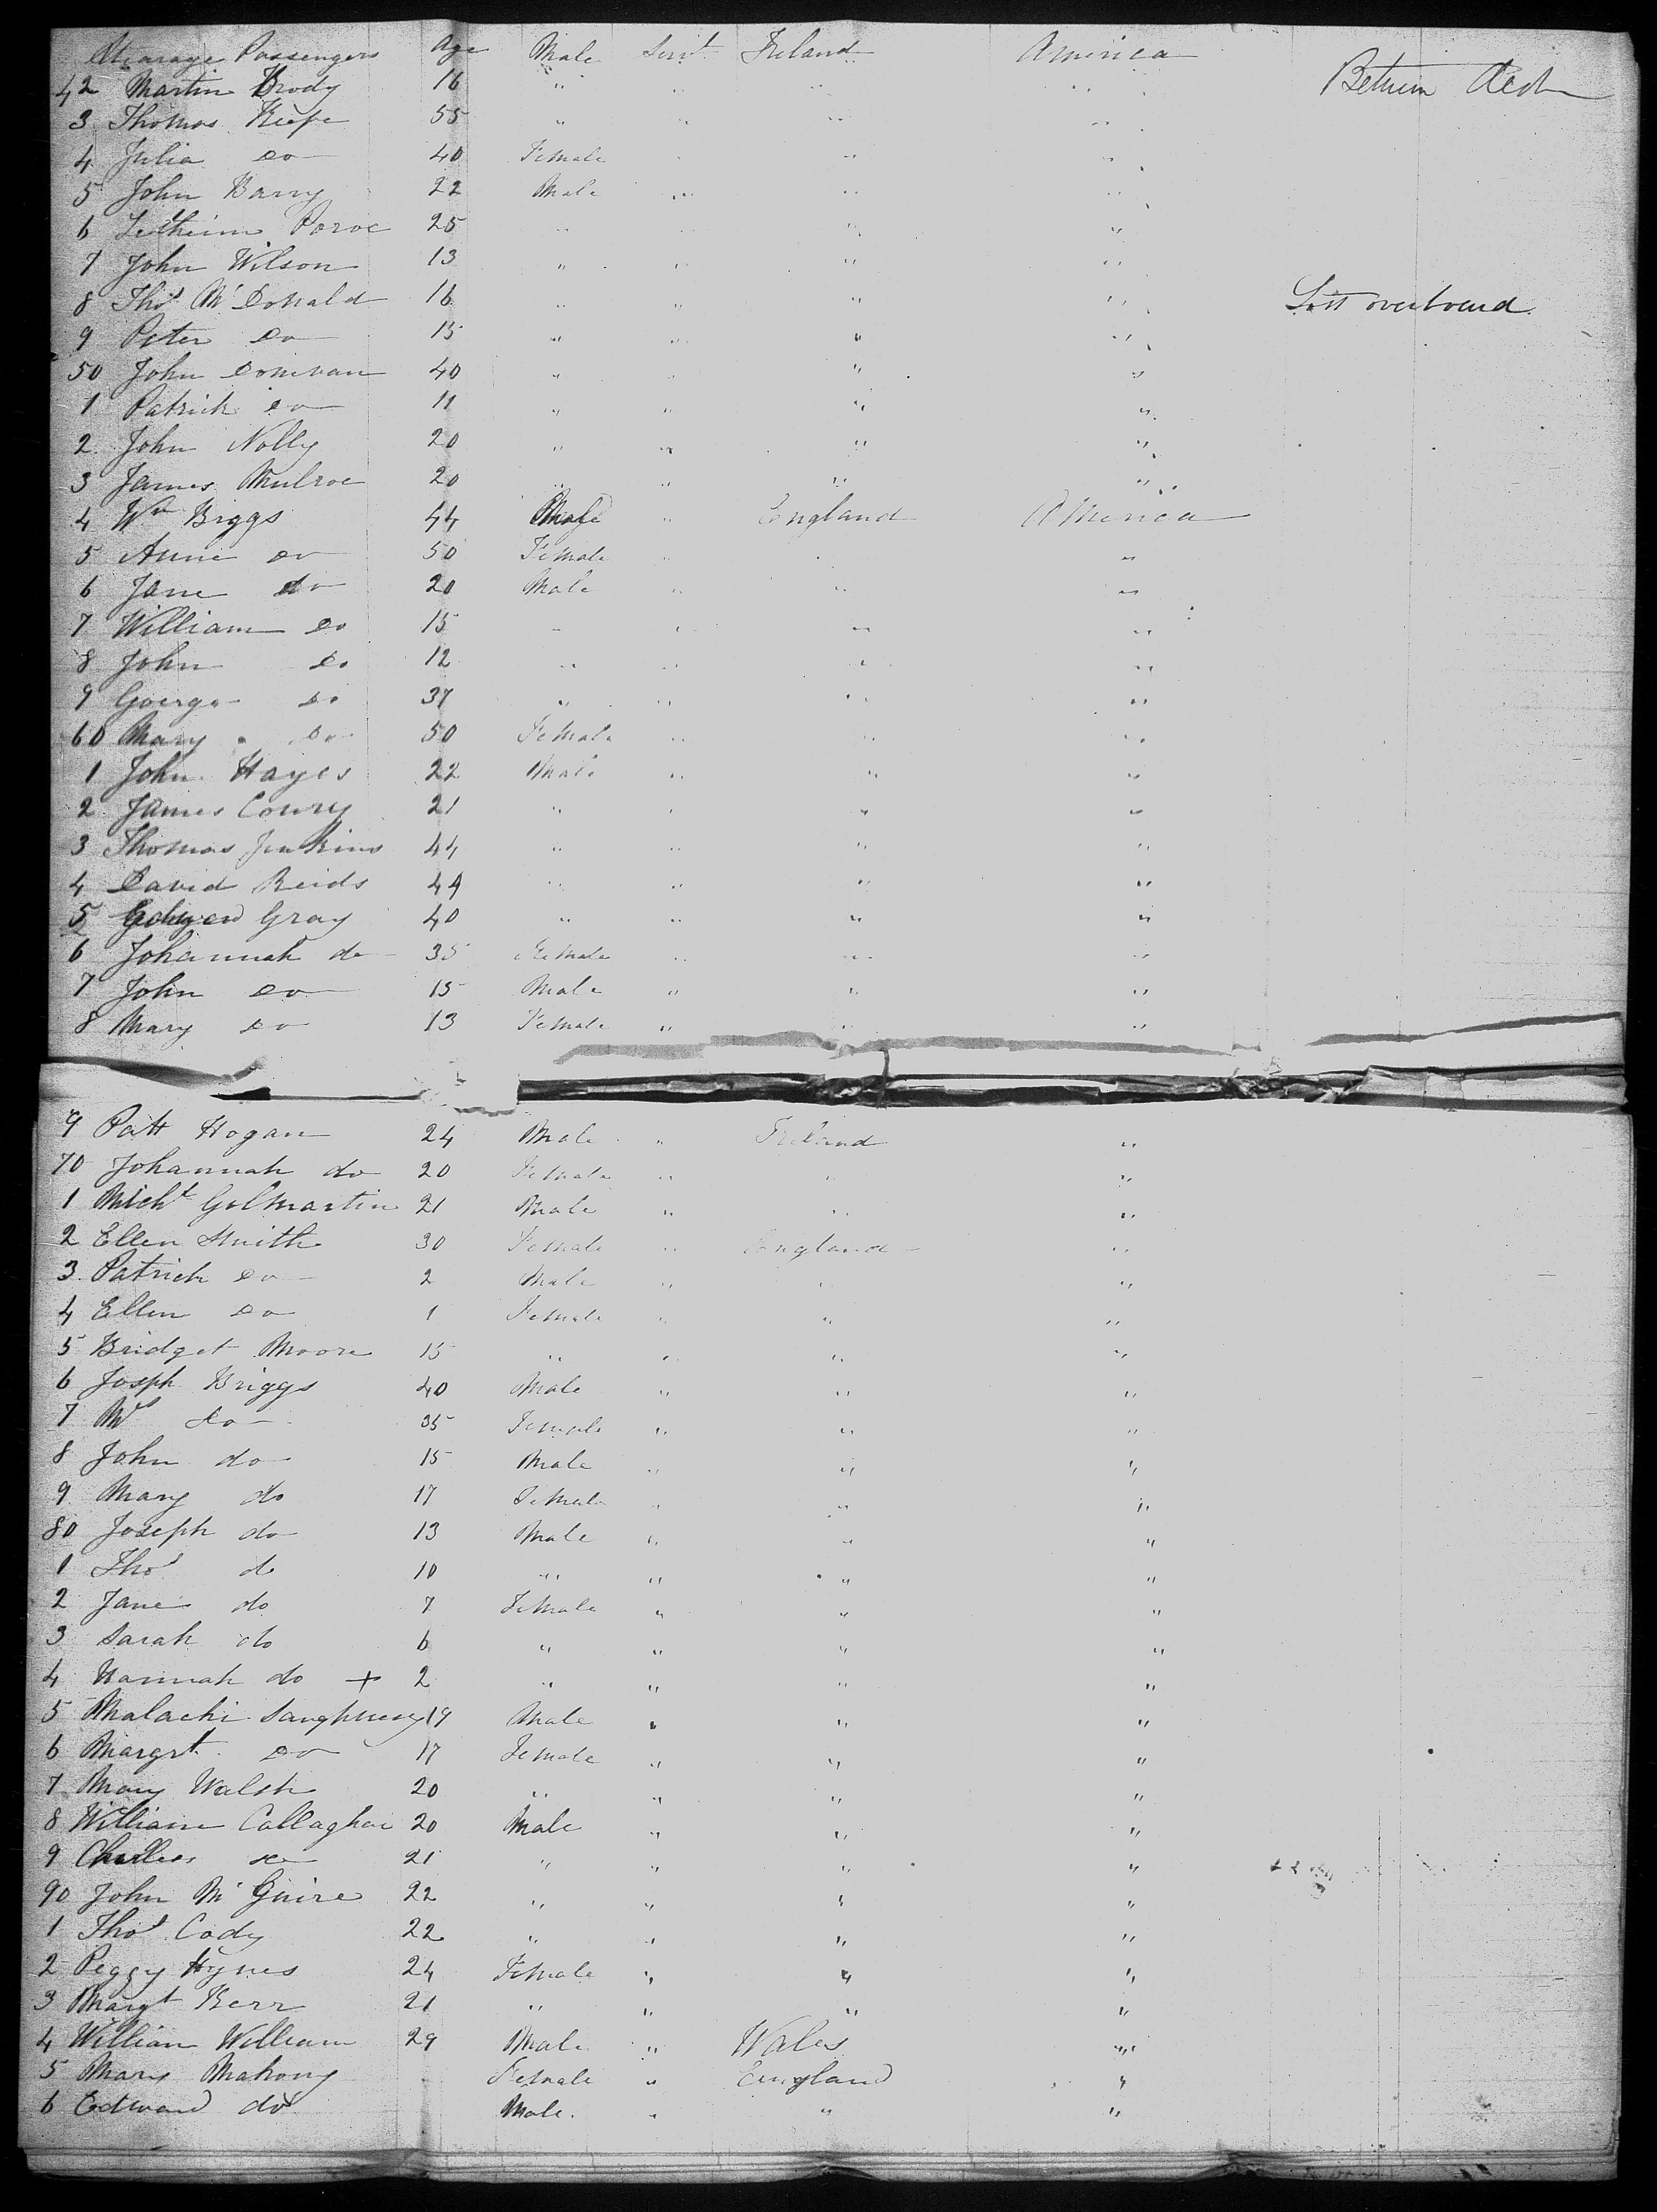 Steerage Passengers Age Male Servt Ireland America
42 Martin Brody 16 " " " " Between Deck
3 Thomas Keefe 55 " " " "
4 Julia do 40 Female " " "
5 John Barry 22 Male " " "
6 25 " " " "
7 John Wilson 13 " " " "
8 Thos McDonald 16 " " " " Lost overboard
9 Peter do 15 " " " "
50 John Donivan 40 " " " "
1 Patrick do 11 " " " "
2 John Nolly 20 " " " "
3 James Mulroe 20 " " " "
4 Wm Briggs 44 Male " England America
5 Anne do 50 Female " " "
6 Jane do 20 Male " " "
7 William do 15 " " " "
8 John do 12 " " " "
9 Goerge do 37 " " " "
60 Mary do 50 Female " " "
1 John Hayes 22 Male " " "
2 James Coury 21 " " " "
3 Thomas Jenkins 44 " " " "
4 David Reids 44 " " " "
5 Gray 40 " " " "
6 Johannah do 35 Female " " "
7 John do 15 Male " " "
8 Mary do 13 Female " " "
9 Patt Hogan 24 Male " Ireland "
70 Johannah do 20 Female " " "
1 Michl Gilmartin 21 Male " " "
2 Ellen Smith 30 Female " England "
3 Patrick do 2 Male " " "
4 Ellen do 1 Female " " "
5 Bridget Moore 15 " " " "
6 Josph Briggs 40 Male " " "
7 Mrs do 35 Female " " "
8 John do 15 Male " " "
9 Mary do 17 Female " " "
80 Joseph do 13 Male " " "
1 Thos do 10 " " " "
2 Jane do 7 Female " " "
3 Sarah do 6 " " " "
4 Hannah do + 2 " " " "
5 Malachi 19 Male " " "
6 Margrt do 17 Female " " "
7 Mary Walsh 20 " " " "
8 William Callaghan 20 Male " " "
9 Charles do 21 " " " "
90 John McGuire 22 " " " "
1 Thos Cody 22 " " " "
2 Peggy Hynes 24 Female " " "
3 Margt Kerr 21 " " " "
4 William William 29 Male " Wales "
5 Mary Mahony Female " England "
6 Edward do Male " " "